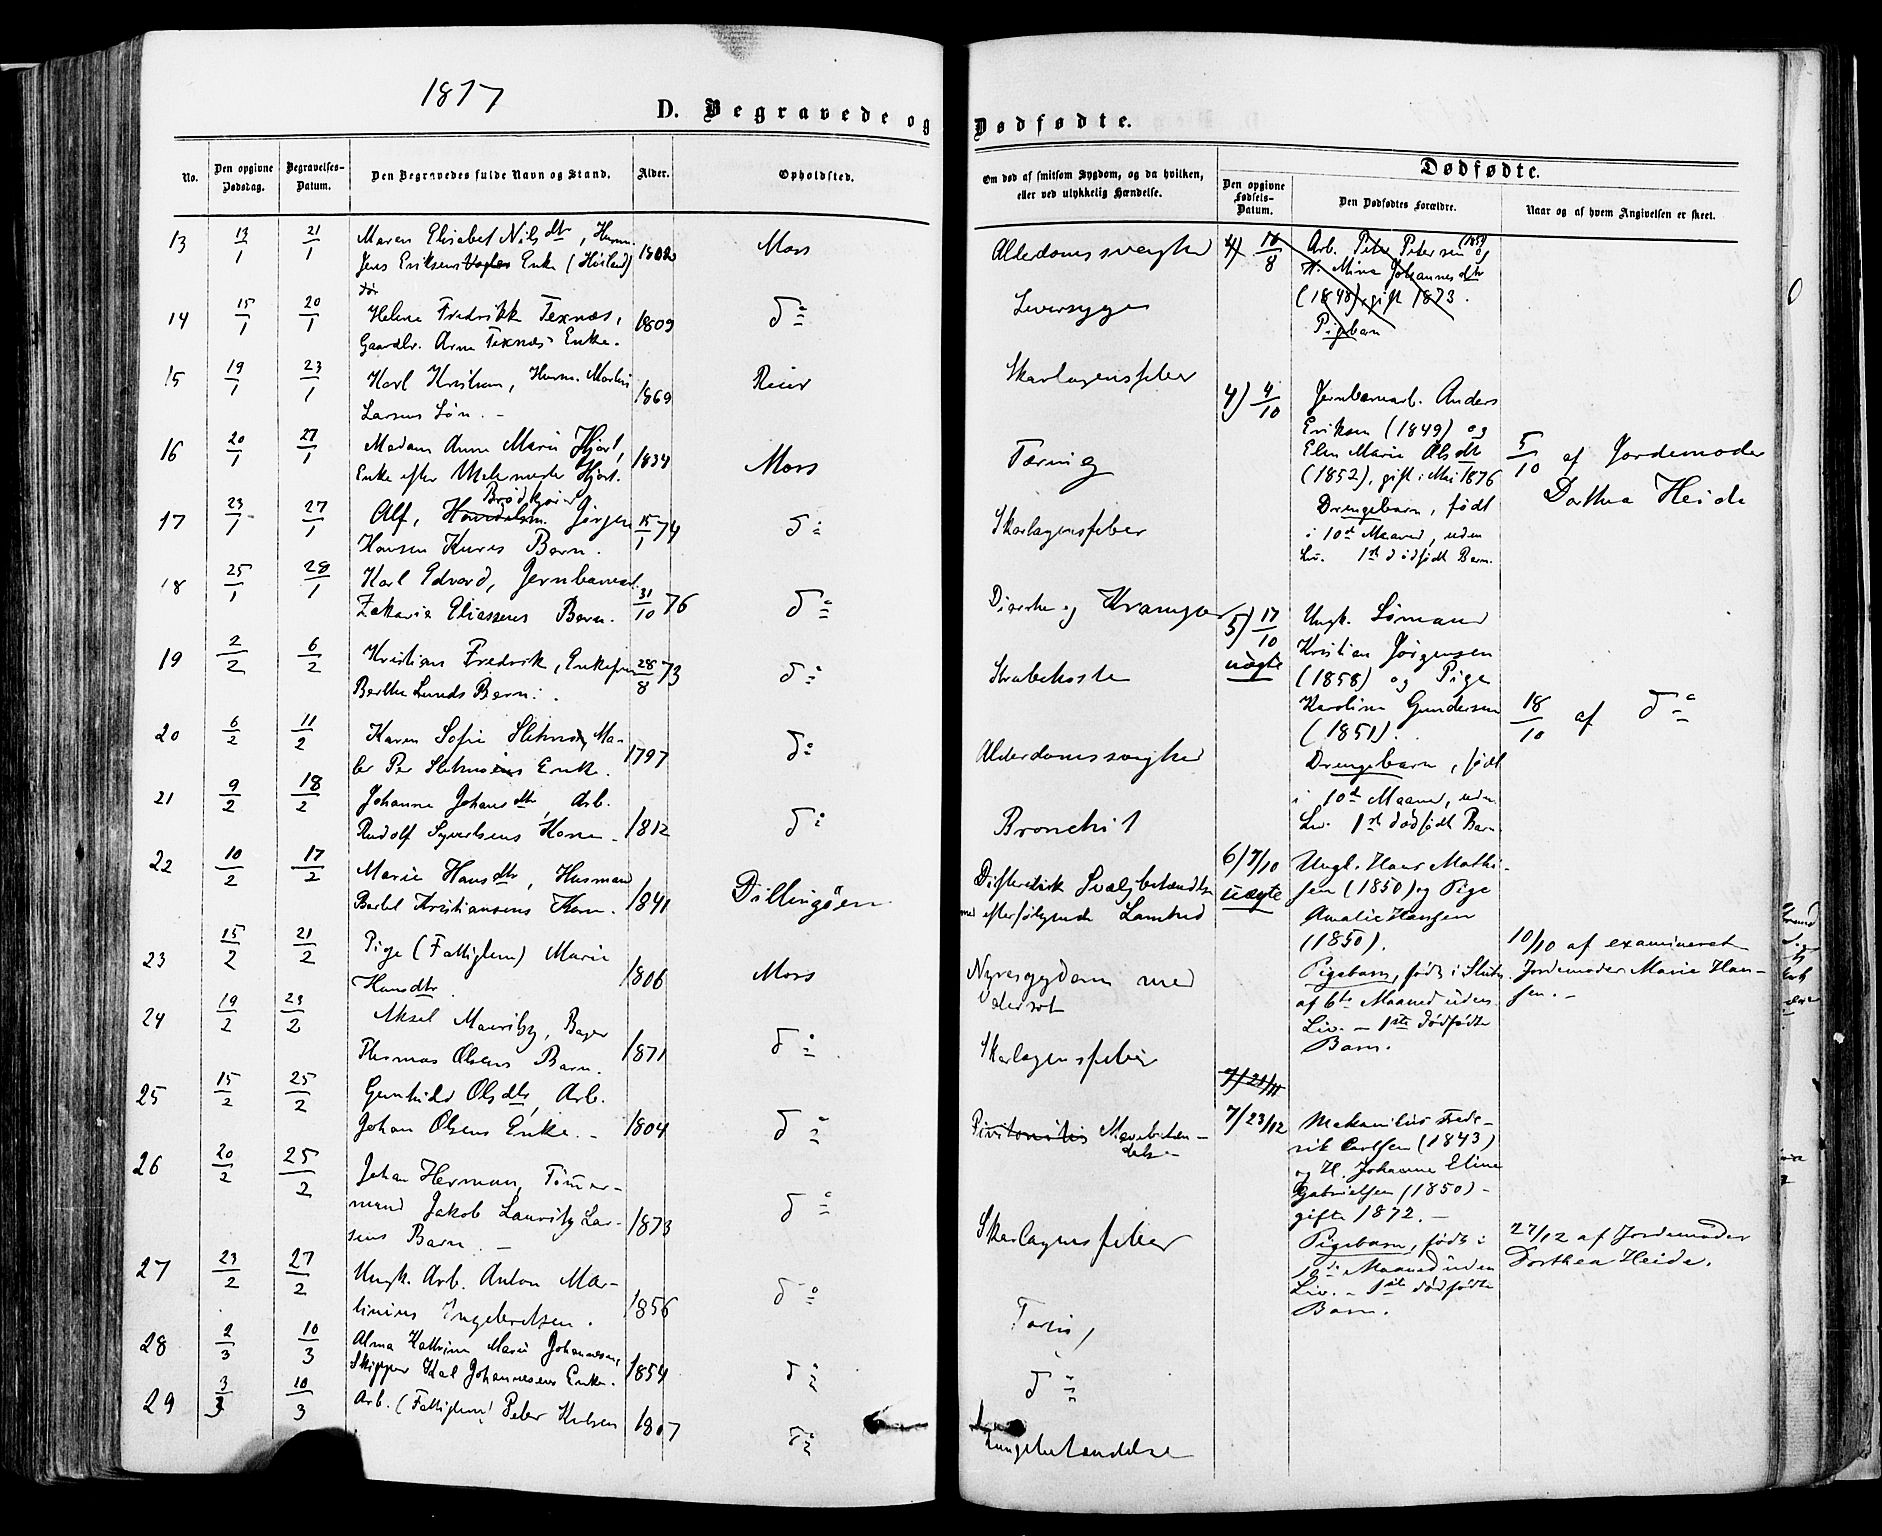 1877
D. Begravede og
Dødfødte.
No.
Den opgivne Dødsdag.
Begravelses-Datum.
Den Begravedes fulde Navn og Stand.
Alder.
Opholdsted.
Om død af smitsom Sygdom, og da hvilken, eller ved ulykkelig Hændelse.
Dødfødte.
Den opgivne Fødsels-Datum.
Den Dødfødtes Forældre.
Naar og af hvem Angivelsen er skeet.
13 13/1 21/1 Maren Elisabet Nilsdtr, Husm. 1802 Moss Alderdomssvaghed
Jens Eriksens Enke
14 15/1 20/1 Helene Fredrikke Texnæs, 1809 do Leversyge
Gaardbr. Arne Texnæs Enke.
15 19/1 23/1 Karl Kristian, Husm. Martin 1869 Reier Skarlagensfeber
Larsens Søn. -
16 20/1 27/1 Madam Anne Marie Hjort, 1834 Moss Tæring
Enke efter Hjort.
17 23/1 27/1 Alf, Brødkjører Jørgen 15/1 74 do Skarlagensfeber
Hansen Kures Barn.
18 25/1 28/1 Karl Edvard, Jernbanearb. 31/10 76 do Diarrhe og Kramper
Zakarias Eliassens Barn.
19 2/2 6/2 Kristian Fredrik, Enkefru 28/8 73 do Strubehoste
Berthe Lunds Barn.
20 6/2 11/2 Karen Sofie Ma- 1797 do Alderdomssvaghed
ler Per Enke.
21 9/2 18/2 Johanne Johansdtr, Arb. 1812 do Bronchit
Rudolf Syvertsens Kone -
22 10/2 17/2 Marie Hansdtr, Husmand 1841 Dillingöen Difteritisk Svælgbetændelse
Kristiansens Kone. med efterfølgende Lamhed
23 15/2 21/2 Pige (Fattiglem) Marie 1806 Moss Nyresygdom med
Hansdtr. Vatersot
24 19/2 23/2 Aksel Mauritz, Bager 1871 do Skarlagensfeber
Thomas Olsens Barn.
25 15/2 25/2 Gunhild Olsdtr, Arb. 1804 do Mavebetæn-
Johan Olsens Enke. - delse
26 20/2 25/2 Johan Herman, Tömer- 1873 do Skarlagensfeber
mand Jakob Lauritz Lar-
sens Barn. -
27 23/2 27/2 Ungk. Arb. Anton Mar- 1856 do
tinius Ingebretsen.
28 2/3 10/3 Alma Kathrine Marie Johannesen, 1854 do do
Skipper Karl Johannesens Enke.
29 3/3 10/3 Arb. (Fattiglem) Peter 1807 do Lungebetændelse
4) 10/8 Arb. Peter Petersen og
H. Mina Johannesdtr
(1848), gift 1873.
Pigebarn
4) 4/10 Jernbanearb. Anders
Eriksen (1849) og
Elen Marie Olsdtr
(1852), gift i Mai 1876
Drengebarn, født
i 10de Maaned, uden
Liv. 1ste dødfødt Barn.
5/10 af Jordemoder
Dorthea Heide
5) 17/10 uægte Ungk. Sømand
Kristian Jørgensen
(1858) og Pige
Karoline Gundersen
(1851).
Drengebarn, født
i 10de Maaned, uden
Liv. 1ste dødfødt Barn
18/10 af do
6/ 7/10 uægte Ungk. Hans Mathi-
sen (1850) og Pige
Amalie Hansen
(1850).
Pigebarn, født i Slutn.
af 6te Maaned uden
Liv. - 1ste dødfødte
Barn.
10/10 af examineret
Jordemoder Marie Han-
sen. -
7/ 21/11
7/ 23/12 Mekanikus Frede-
rik Carlsen (1843)
og H. Johanne Eline
Gabrielsen (1850) -
gifte 1872. -
Pigebarn, født i
10de Maaned uden
Liv. - 1ste dødfødte
Barn.
27/12 af Jordemoder
Dorthea Heide.